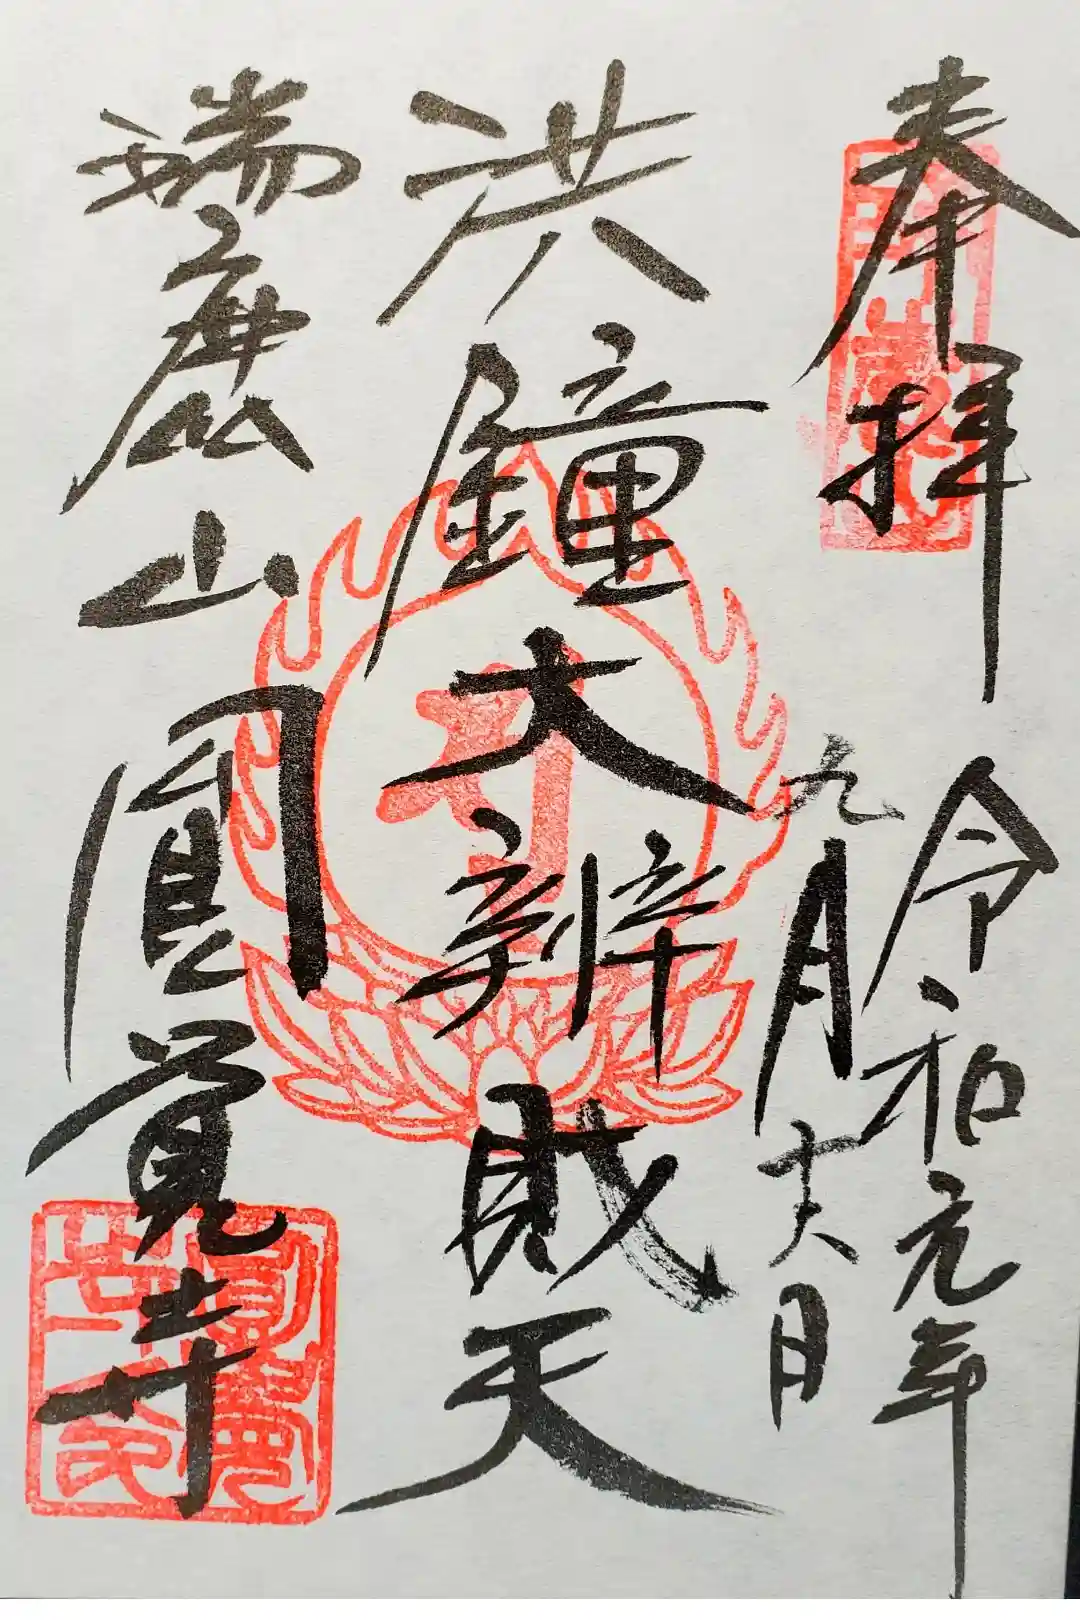 奉拝
令和元年
九月十六日
洪鐘大辨財天
瑞鹿山圓覺寺